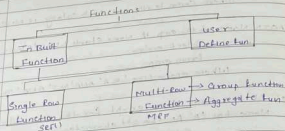 Functions
In Built
Function
User
Define Fun.
Single Row
Function
Multi-Row → Group Function
Function → Aggregate Fun
MRF